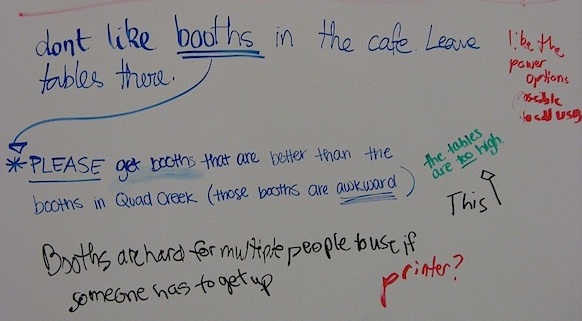 dont like booths in the cafe. Leave
tables there.
like the
power
options
possible
to add usb
*PLEASE get booths that are better than the
booths in Quad Creek (those booths are awkward)
the tables
are too high
This
Booths are hard for multiple people to use if
someone has to get up
printer?